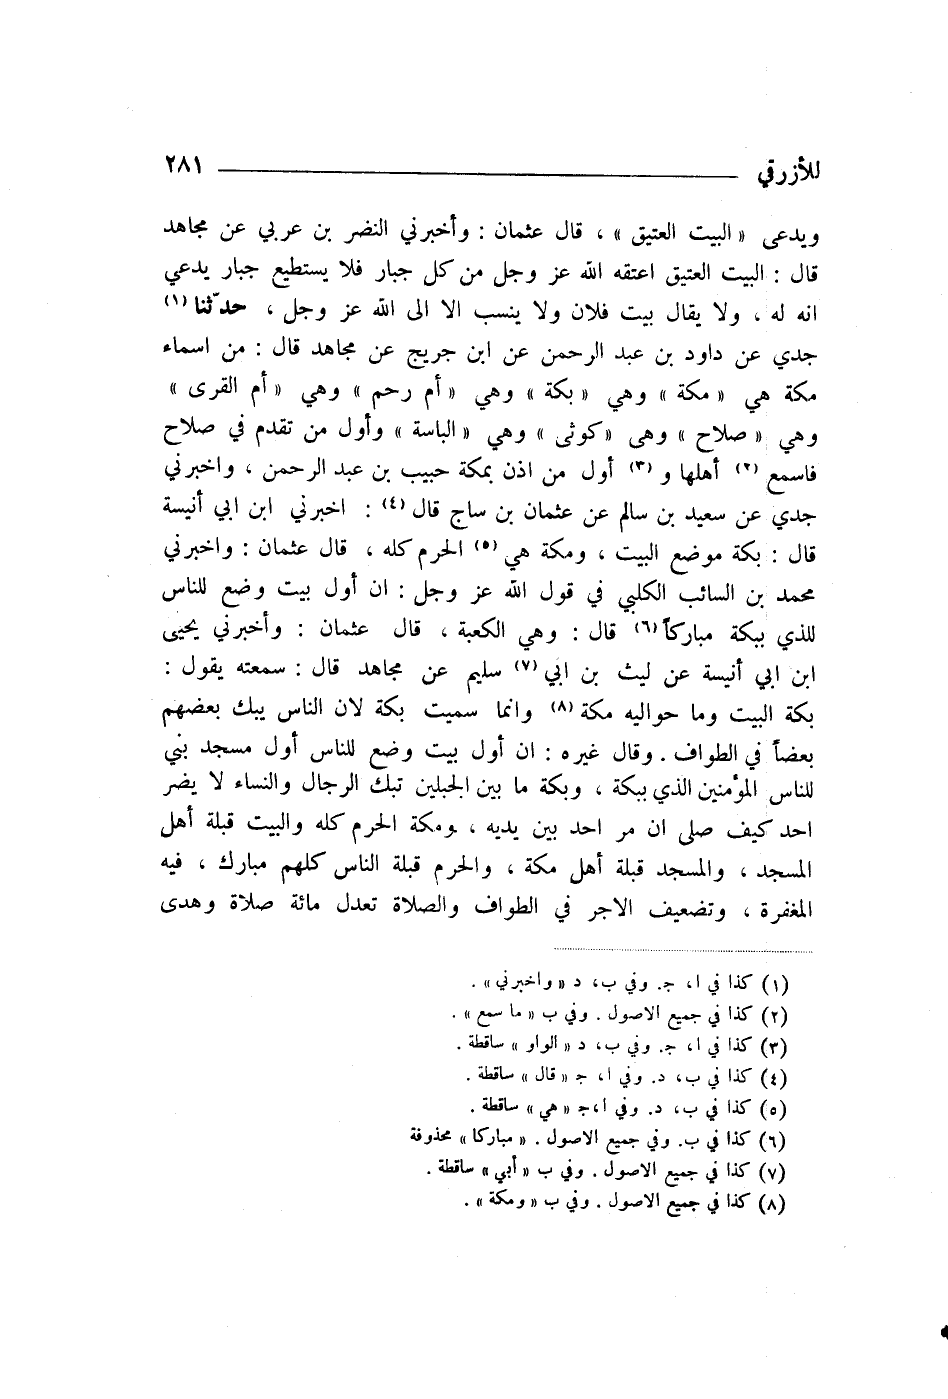 للأزرقي ٢٨١
ويدعى « البيت العتيق » ، قال عثمان : وأخبرني النضر بن عربي عن مجاهد
قال : البيت العتيق اعتقه الله عز وجل من كل جبار فلا يستطيع جبار يدعي
انه له ، ولا يقال بيت فلان ولا ينسب الا الى الله عز وجل ، حدّثنا (١)
جدي عن داود بن عبد الرحمن عن ابن جريج عن مجاهد قال : من اسماء
مكة هي « مكة » وهي « بكة » وهي « أم رحم » وهي « أم القرى »
وهي « صلاح » وهى « كوثى » وهي « الباسة » وأول من تقدم في صلاح
فاسمع (٢) أهلها و (٣) أول من اذن بمكة حبيب بن عبد الرحمن ، واخبرني
جدي عن سعيد بن سالم عن عثمان بن ساج قال (٤) : اخبرني ابن ابي أنيسة
قال : بكة موضع البيت ، ومكة هي (٥) الحرم كله ، قال عثمان : واخبرني
محمد بن السائب الكلبي في قول الله عز وجل : ان أول بيت وضع للناس
للذي ببكة مباركاً (٦) قال : وهي الكعبة ، قال عثمان : وأخبرني يحيى
ابن ابي أنيسة عن ليث بن ابي (٧) سليم عن مجاهد قال : سمعته يقول :
بكة البيت وما حواليه مكة (٨) وانما سميت بكة لان الناس يبك بعضهم
بعضاً في الطواف . وقال غيره : ان أول بيت وضع للناس أول مسجد بني
للناس المؤمنين الذي ببكة ، وبكة ما بين الجبلين تبك الرجال والنساء لا يضر
احد كيف صلى ان مر احد بين يديه ، ومكة الحرم كله والبيت قبلة أهل
المسجد ، والمسجد قبلة أهل مكة ، والحرم قبلة الناس كلهم مبارك ، فيه
المغفرة ، وتضعيف الاجر في الطواف والصلاة تعدل مائة صلاة وهدى
(١) كذا في ا، ج. وفي ب، د « واخبرني » .
(٢) كذا في جميع الاصول . وفي ب « ما سمع » .
(٣) كذا في ا، ج. وفي ب، د « الواو » ساقطة .
(٤) كذا في ب، د. وفي ا، ج « قال » ساقطة .
(٥) كذا في ب، د. وفي ا،ج « هي » ساقطة .
(٦) كذا في ب. وفي جميع الاصول . « مباركا » محذوفة
(٧) كذا في جميع الاصول . وفي ب « أبي » ساقطة .
(٨) كذا في جميع الاصول . وفي ب « ومكة » .